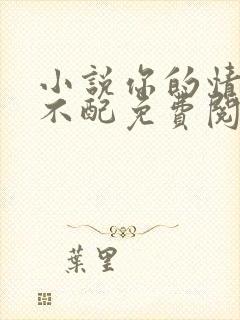 小說你的情
不配免費閱
葉里